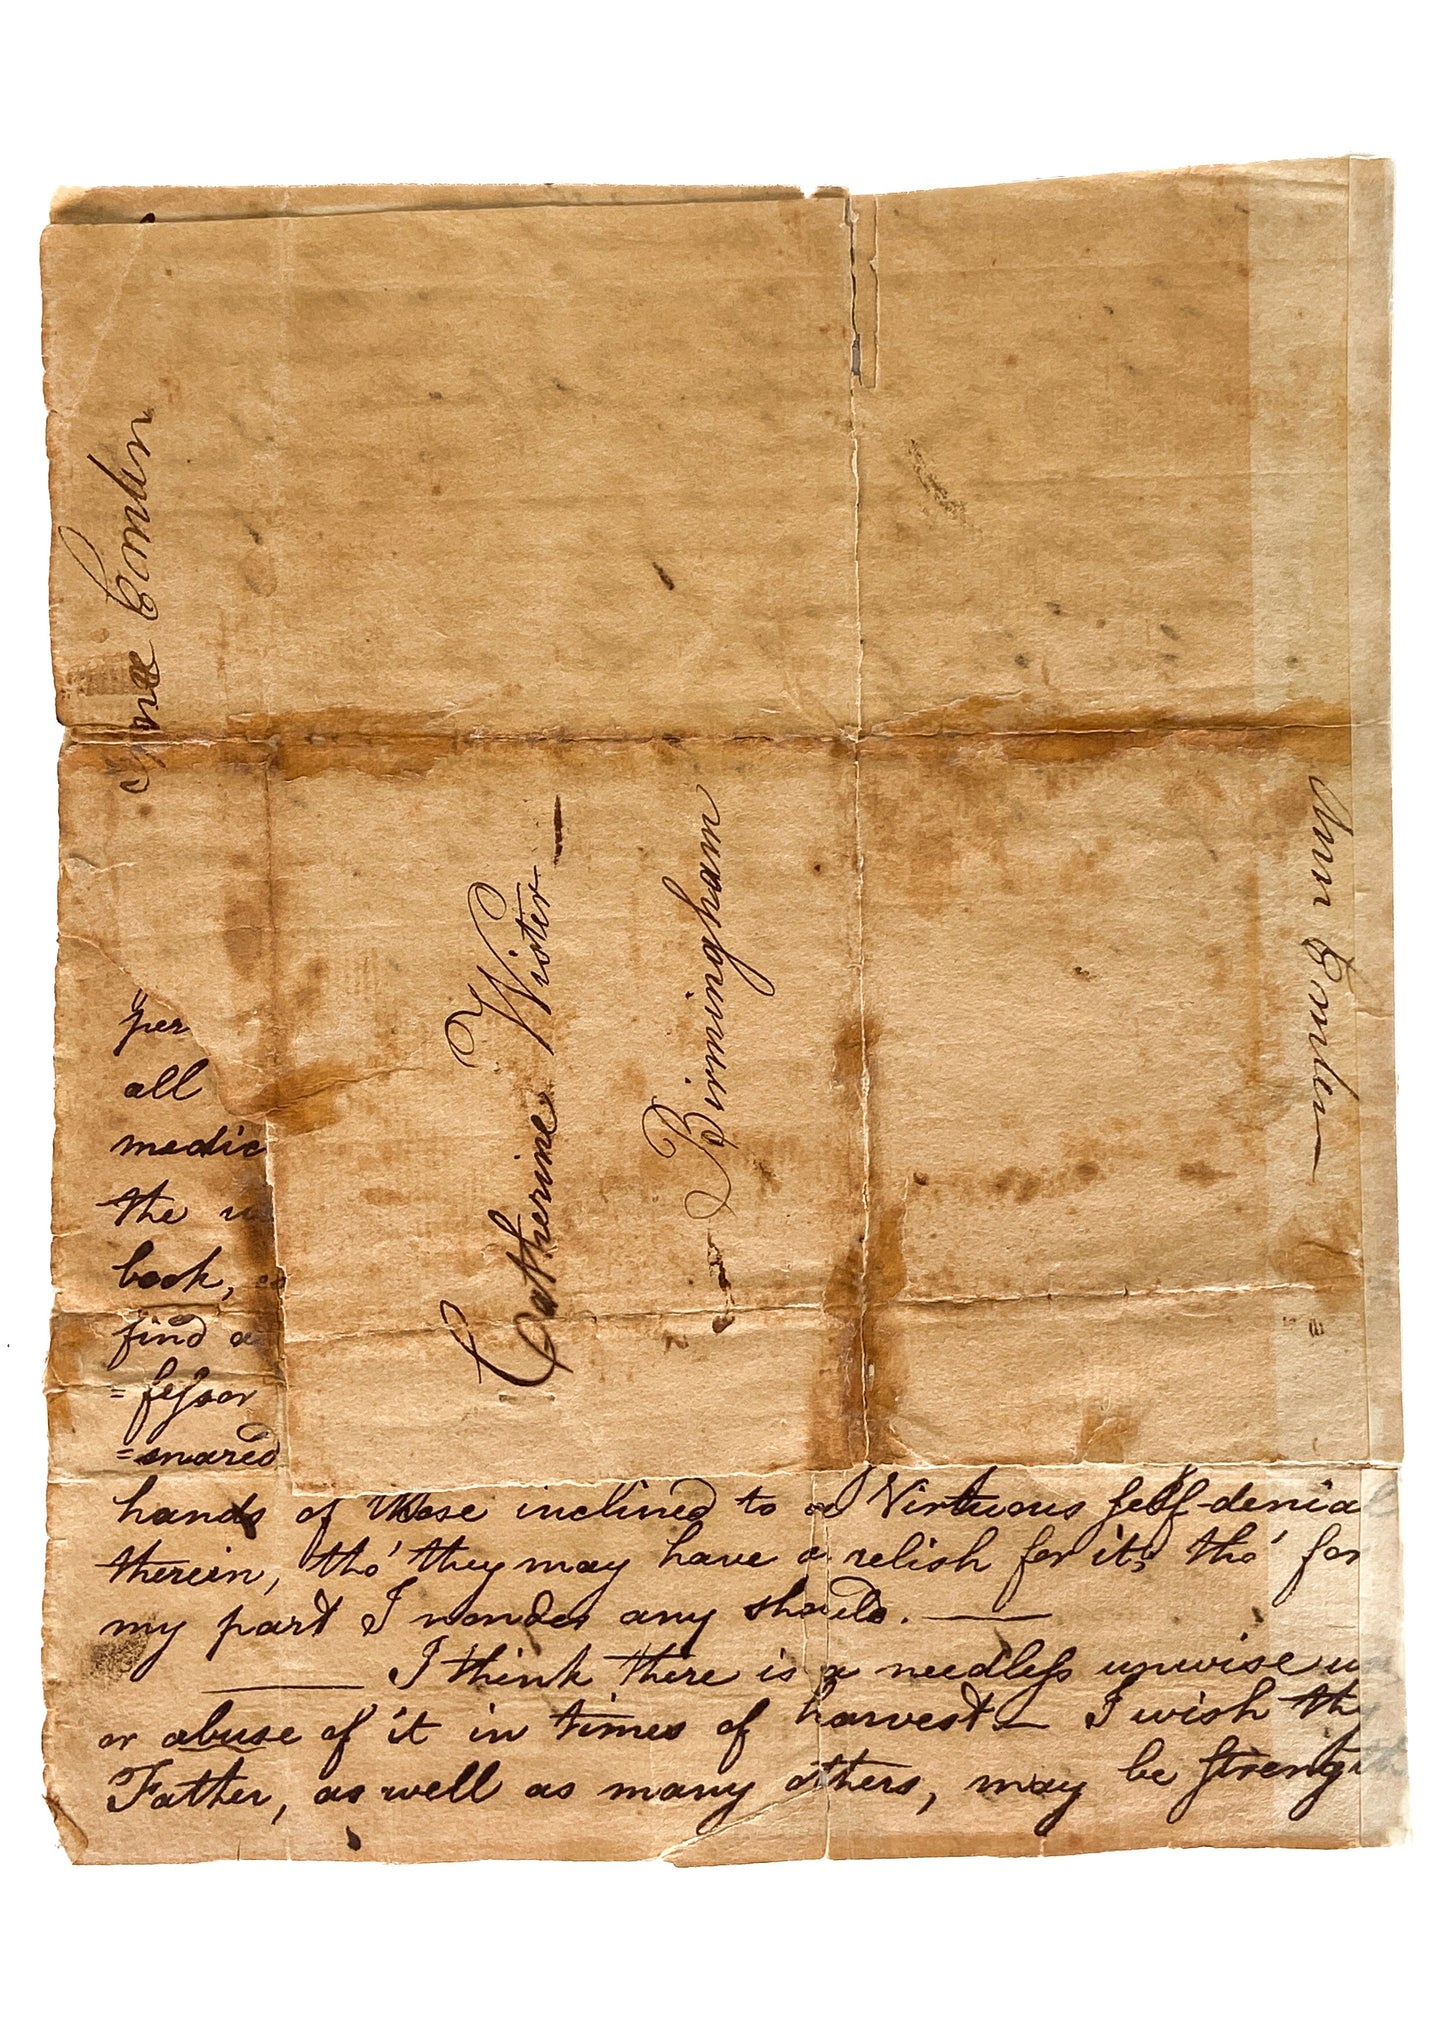 Catherine Wister —
— Birmingham
Ann
per
all
medic
the
book,
find
= feſsor
=snared
hands of those inclined to a Virtuous ſelf-denial
therein, tho' they may have a relish for it; tho' for
my part I wonder any should. —
— I think there is a needleſs unwise
or abuse of it in times of harvest — I wish
Father, as well as many others, may be